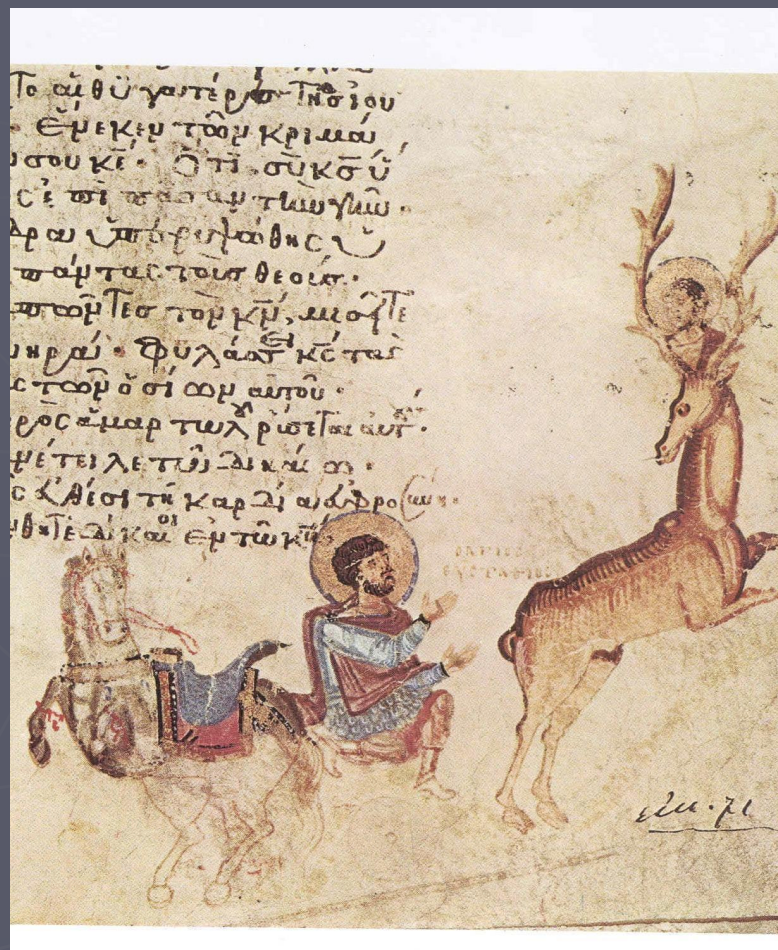 το αἱ θυγατέρες τῆς ἰου
ἕνεκεν τῶν κριμά
σου κε· Ὅτι σὺ κς ὕ
ς ἐπὶ πᾶσαν τὴν γῆν·
δρα ὑπερυψώθης ὑ
πάντας τοὺς θεούς·
πῶντες τὸν κν, μισεῖτε
νηρά· Φυλάσσει κς τὰς
ς τῶν ὁσίων αὐτοῦ·
ρὸς ἁμαρτωλ ρύσεται αὐτ·
νέτειλε τῶ δικαίω·
εὐθέσι τῆ καρδία εὐφροσύνη·
θητε δίκαιοι ἐν τῶ κω
ΕΥΣΤΑΘΙΟΣ
εἰκ. 71